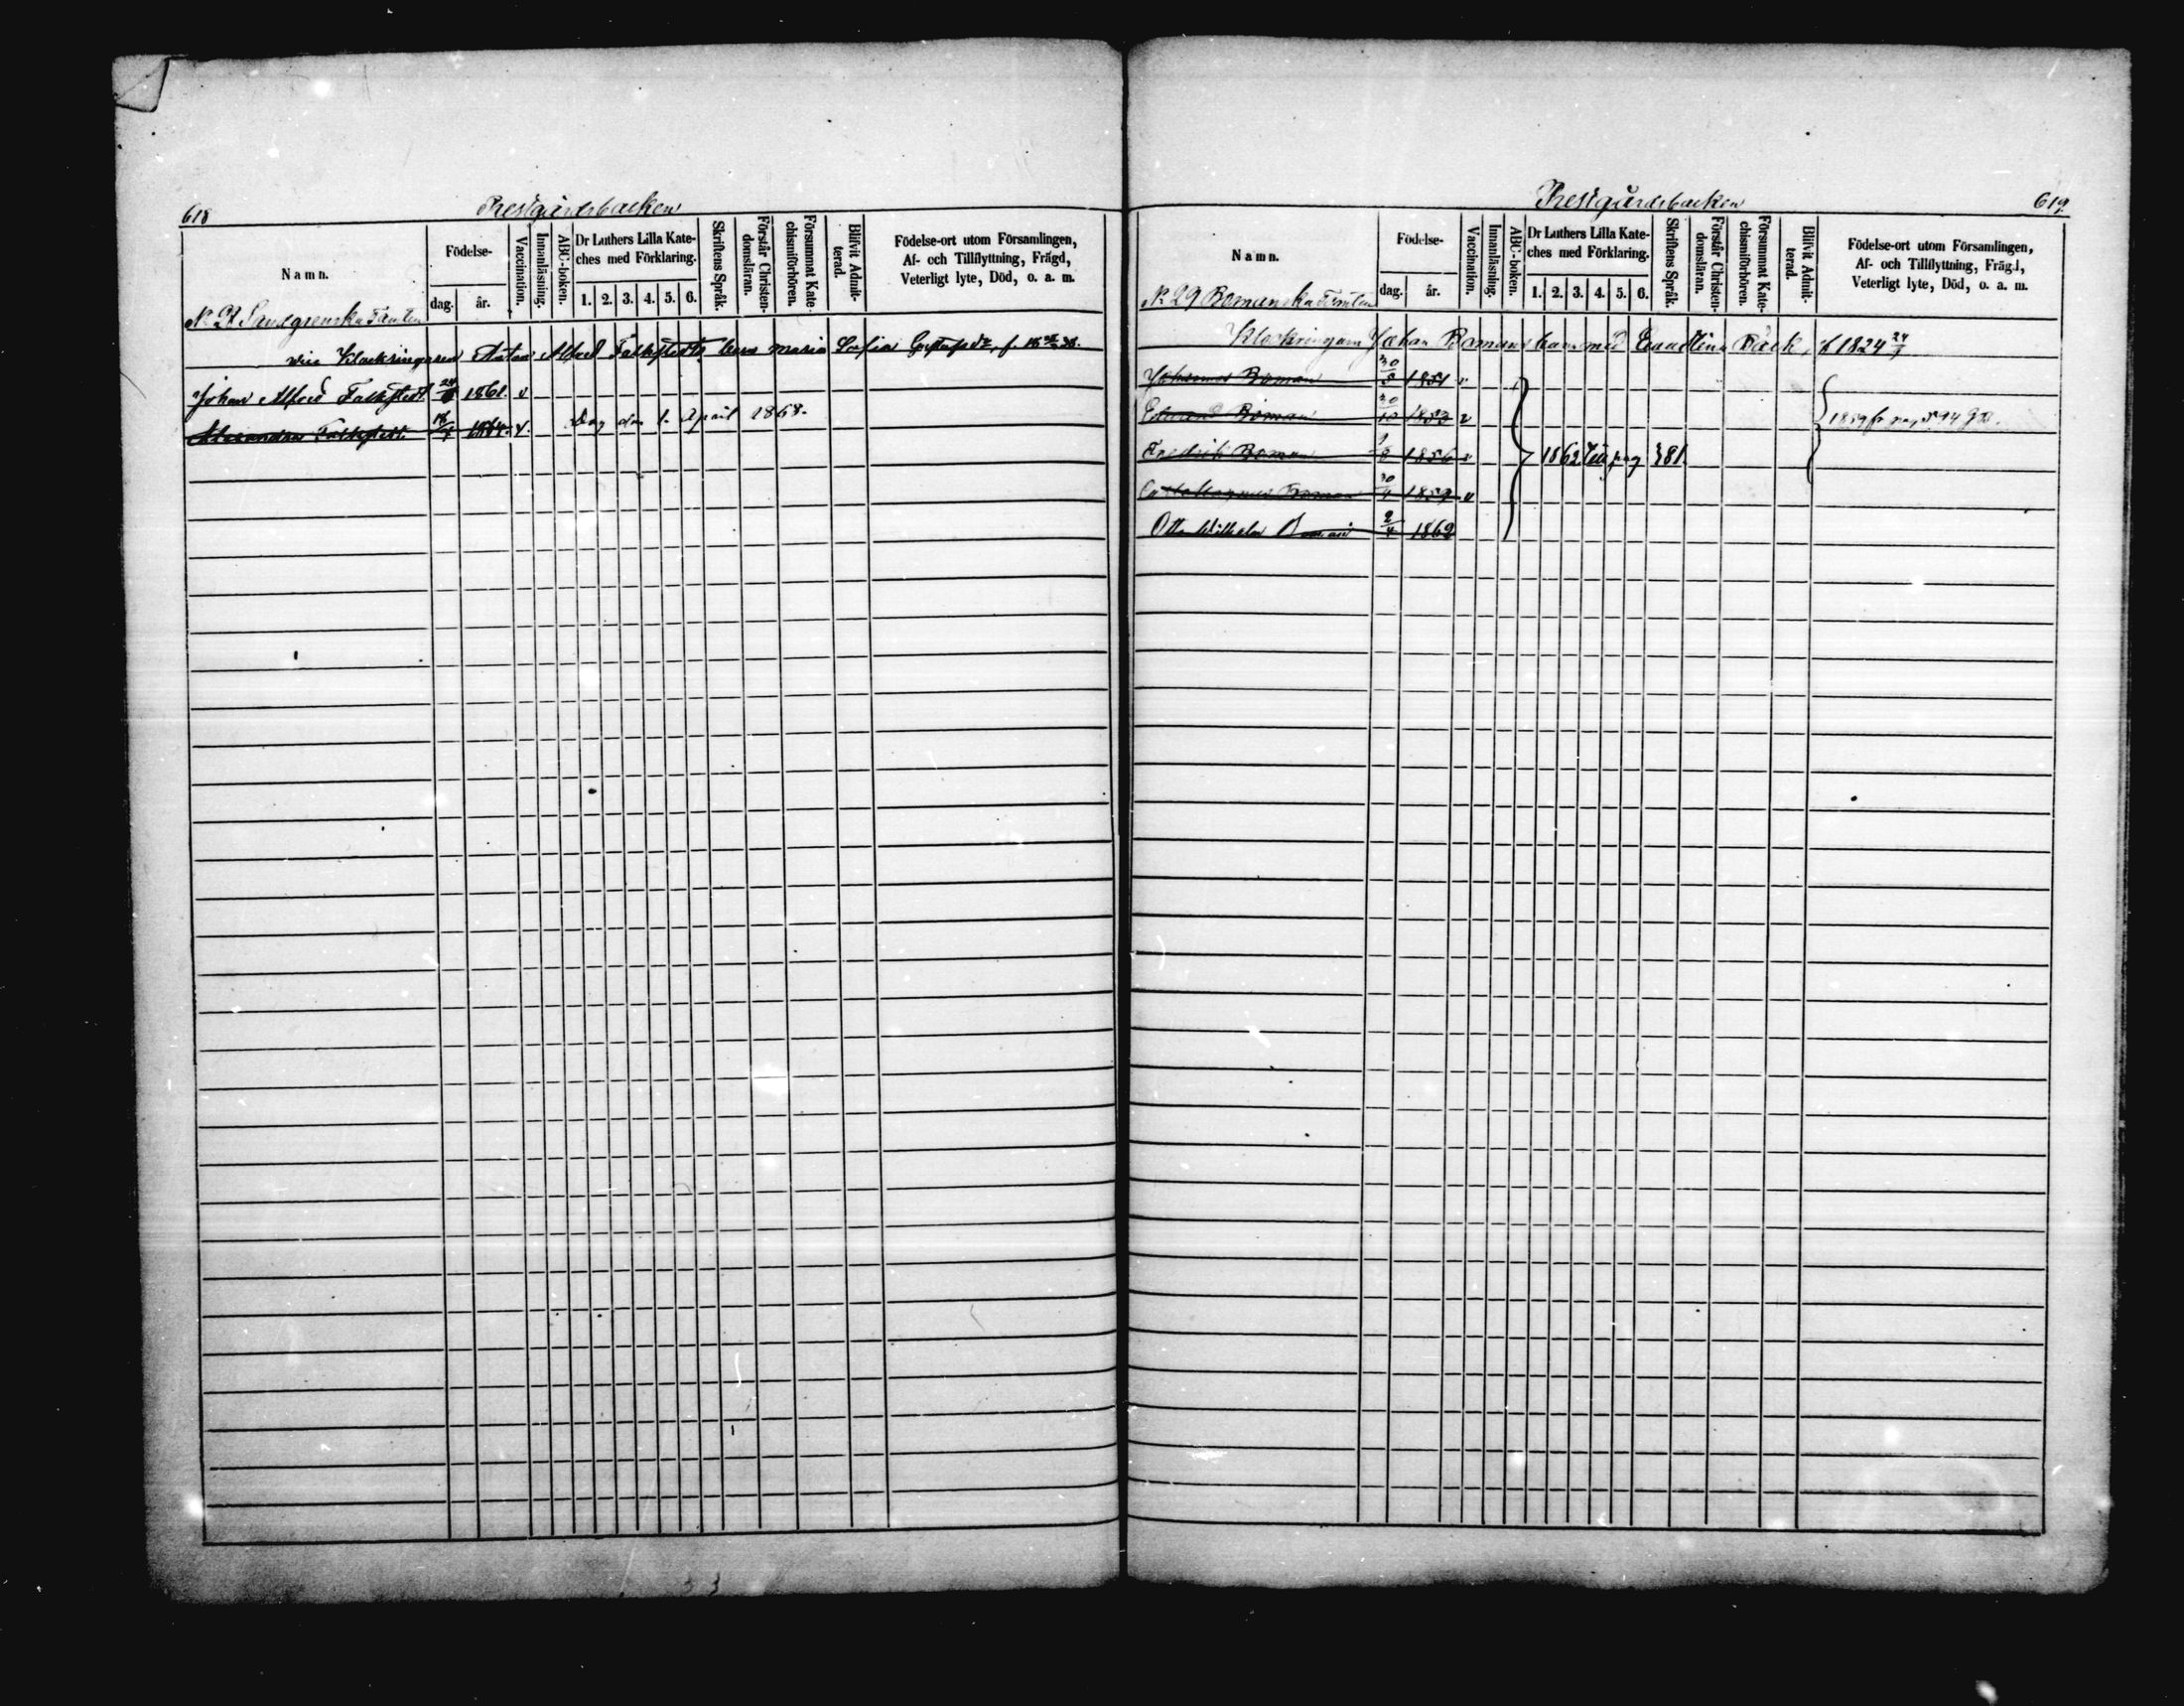 618
Prestgårdsbacken
Namn.
Födelse-
dag.
år.
Vaccination.
Innanläsning.
ABC-boken.
Dr Luthers Lilla Kate-
ches med Förklaring.
1. 2. 3. 4. 5. 6.
Skriftens Språk.
Förstår Christen-
domsläran.
Försummat Kate-
chismiförhören.
Blifvit Admit-
terad.
Födelse-ort utom Församlingen,
Af- och Tillflyttning, Frägd,
Veterligt lyte, Död, o. a. m.
Sandgrenska Tomten
vice Klockringaren Anton Alfred Falkstedts barn Maria Sofia
Johan Alfred Falkstedt 1861. v
Alexandra Falkstedt 1864. v. Dog den 1. April 1868.
619
Prestgårdsbacken
Namn.
Födelse-
dag.
år.
Vaccination.
Innanläsning.
ABC-boken.
Dr Luthers Lilla Kate-
ches med Förklaring.
1. 2. 3. 4. 5. 6.
Skriftens Språk.
Förstår Christen-
domsläran.
Försummat Kate-
chismiförhören.
Blifvit Admit-
terad.
Födelse-ort utom Församlingen,
Af- och Tillflyttning, Frägd,
Veterligt lyte, Död, o. a. m.
No 29 Bomanska Tomten
Klockringaren Johan Bomans barn med Bäck, f 1824
Johannes Boman 30/5 1851 v
Edvard Boman 30/10 1853 v
1859 fr pag 594
Fredrik Boman 1856 v 1862 till pag 381.
Magnus Boman 1859 v
Otto Wilhelm Boman 2/4 1862